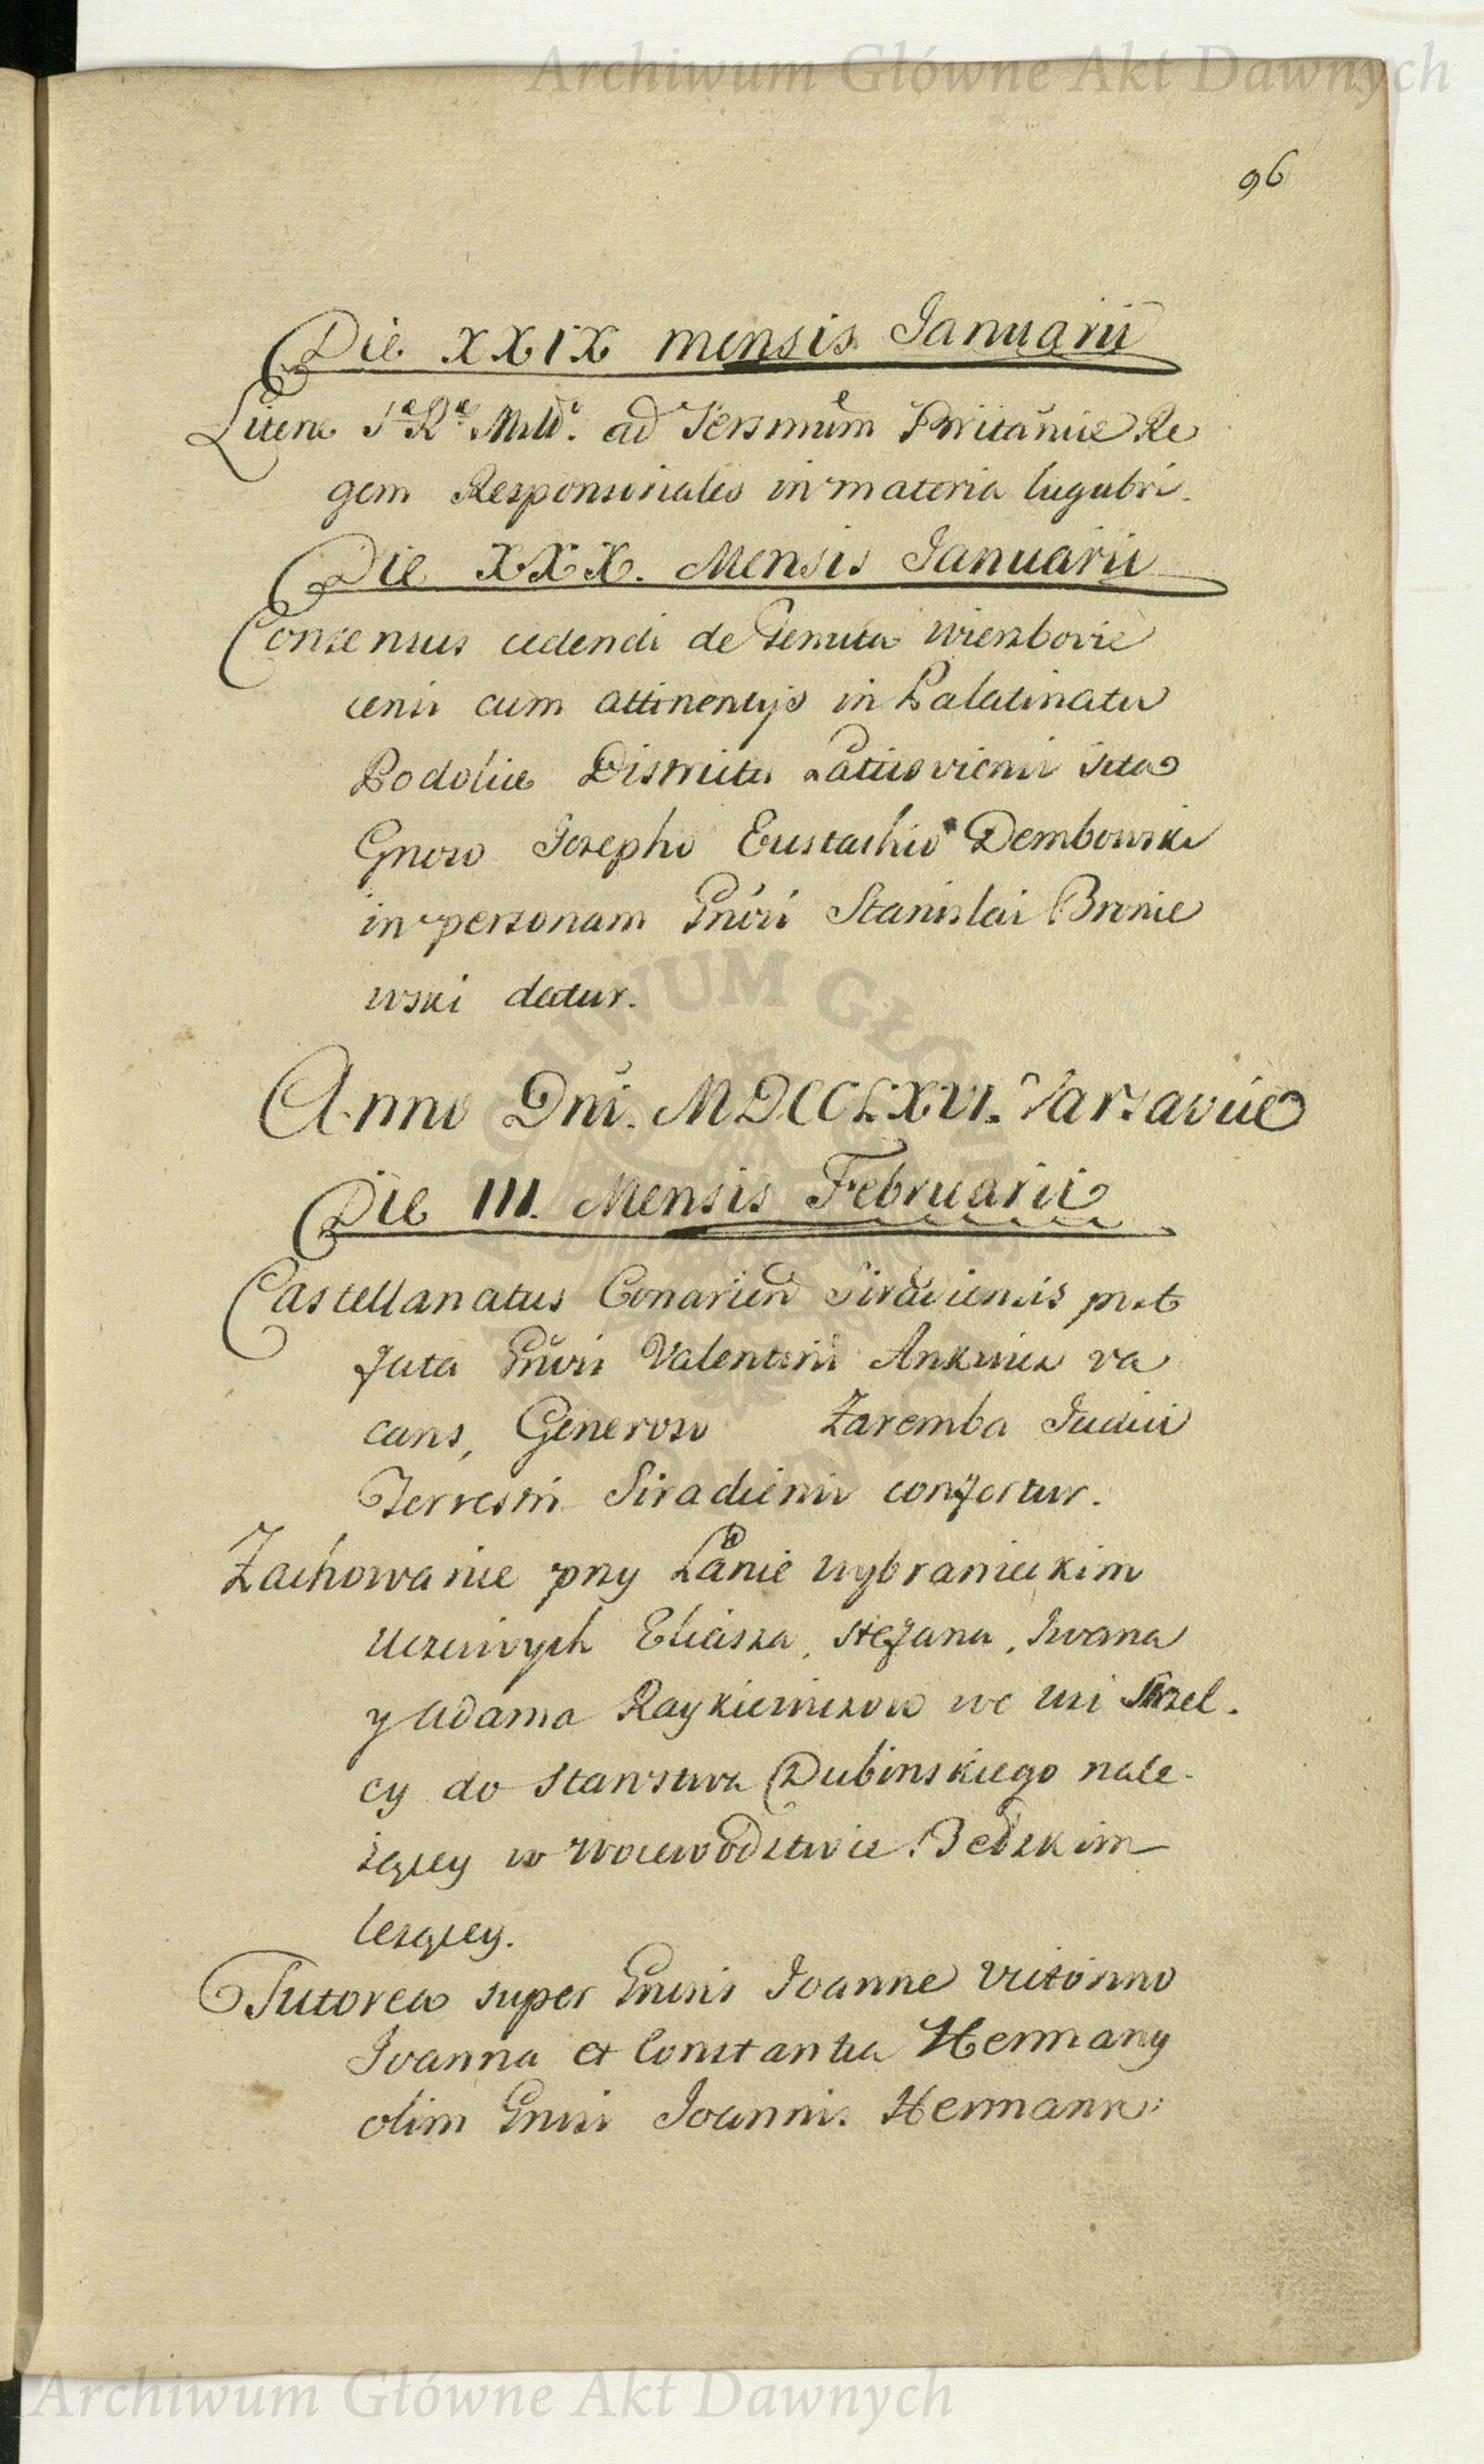 Archiwum Główne Akt Dawnych
96
Die XXIX mensis Januarii
Literæ Sæ Ræ Mttis. ad Sersmum Britaniæ Re
gem Responsoriales in materia lugubri.
Die XXX. Mensis Januarii
Consensus cedendi de Tenuta Wierzbovie
censi cum attinentijs in Palatinatu
Podoliæ Districtu Laticoviensi sita
Gnoso Josepho Eustachio Dembowski
in personam Gnosi Stanislai Bronie
wski datur.
Anno Dni. MDCCLXVI. Varsaviæ
Die III. Mensis Februarii
Castellanatus Conarien Siradiensis post
fata Gnosi Valentini Ankwicz va
cans, Generoso Zaremba Judici
Terrestri Siradiensi confertur.
Zachowanie przy Łanie wybranieckim
Uczciwych Eliasza, Stefana, Iwana
y Adama Raykiewiczow we wsi Strzel.
cy do Starostwa Dubinskiego nale-
żącey w Woiewodztwie Bełzkim
leżącey.
Tutorea super Gnosis Joanne Victorino
Joanna et Constantia Hermany
olim Gnosi Joannis Hermann
ARCHIWUM GŁÓWNE AKT DAWNYCH
Archiwum Główne Akt Dawnych